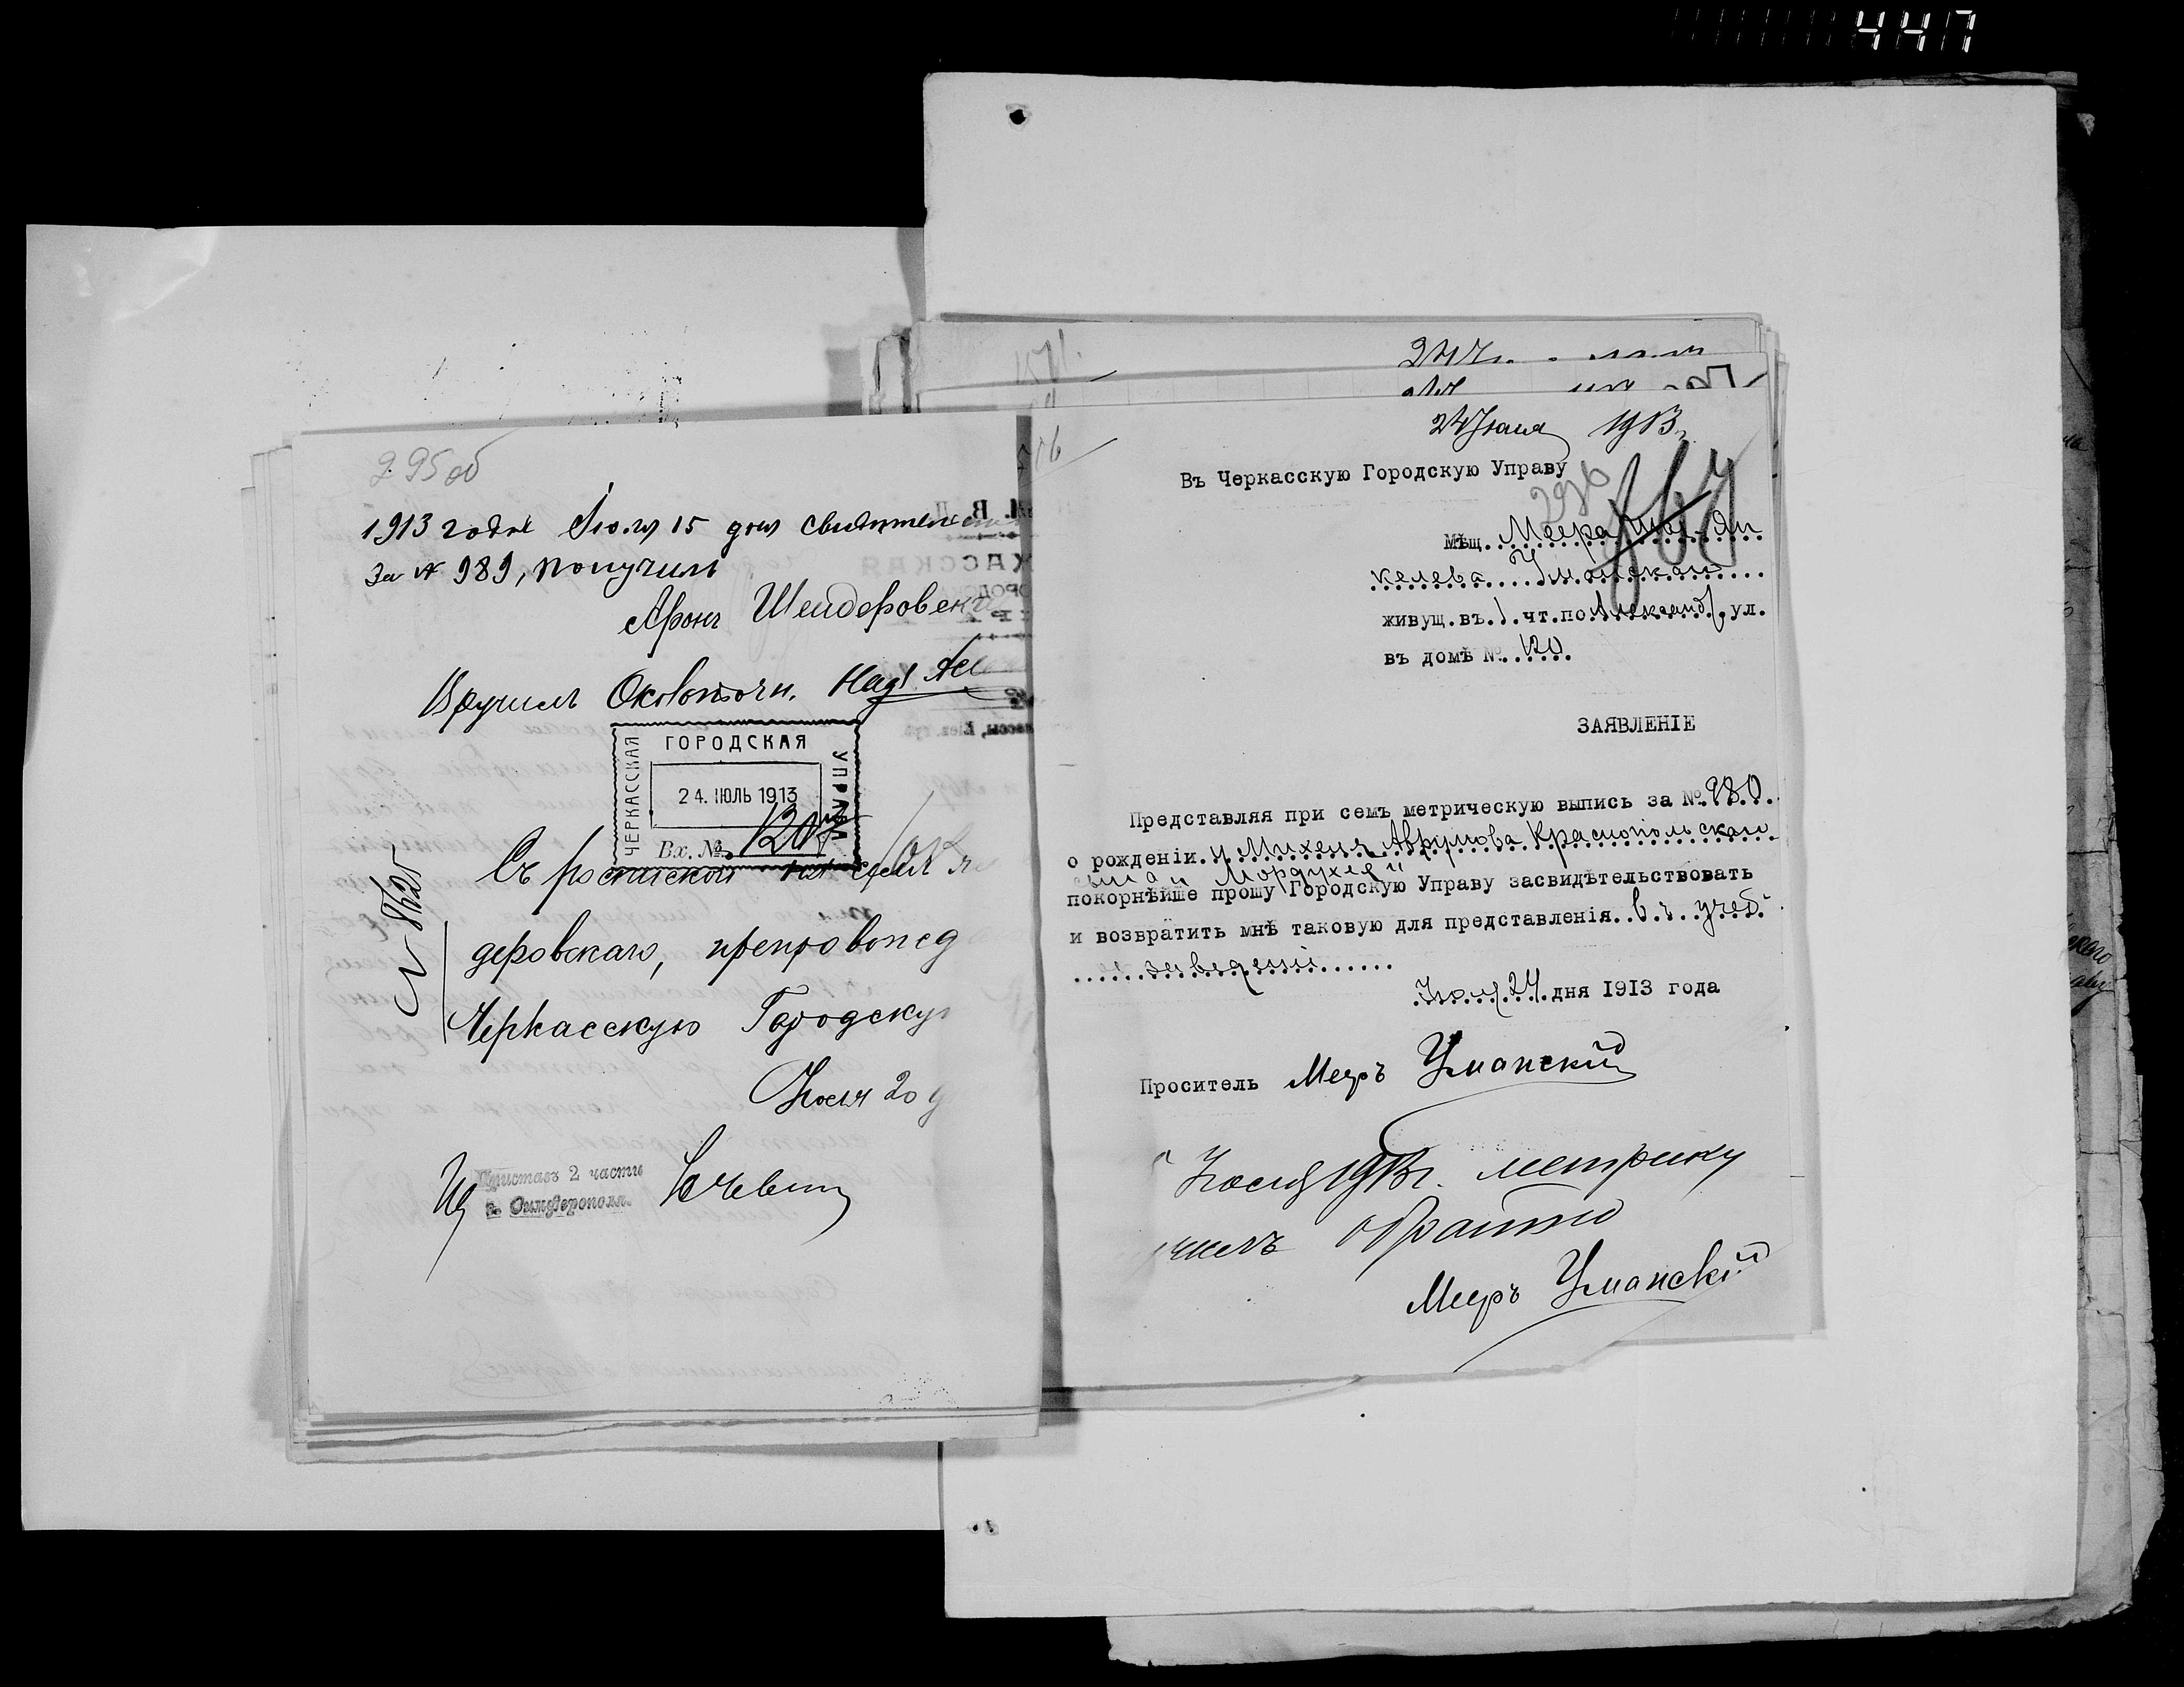 447
295 об
1913 года Іюля 15 дня свидѣтель
За № 989, получилъ
Аронъ Шендеровск
Вручилъ Околоточн. Над
ЧЕРКАССКАЯ ГОРОДСКАЯ УПРАВА
24. ІЮЛЬ 1913
Вх. № 1207
Съ роспиской
№ 8425
деровскаго, препровожд
Черкасскую Городскую
Іюля 20 д
Приставъ 2 части
г. Симферополя.
24 Іюля 1913 г.
Въ Черкасскую Городскую Управу
296
мѣщ. Меера Ян
келева Уманскаго
живущ. въ 1 чт. по Александр. ул.
въ домѣ № 120
ЗАЯВЛЕНІЕ
Представляя при семъ метрическую выпись за № 980
о рожденіи у Михеля Аврумова Краснопольскаго
сына Мордухея
покорнѣйше прошу Городскую Управу засвидѣтельствовать
и возвратить мнѣ таковую для представленія въ учеб.
заведеніе
Іюля 24 дня 1913 года
Проситель Мееръ Уманскій
Іюля 1913 г. метрику
чилъ обратно
Мееръ Уманскій